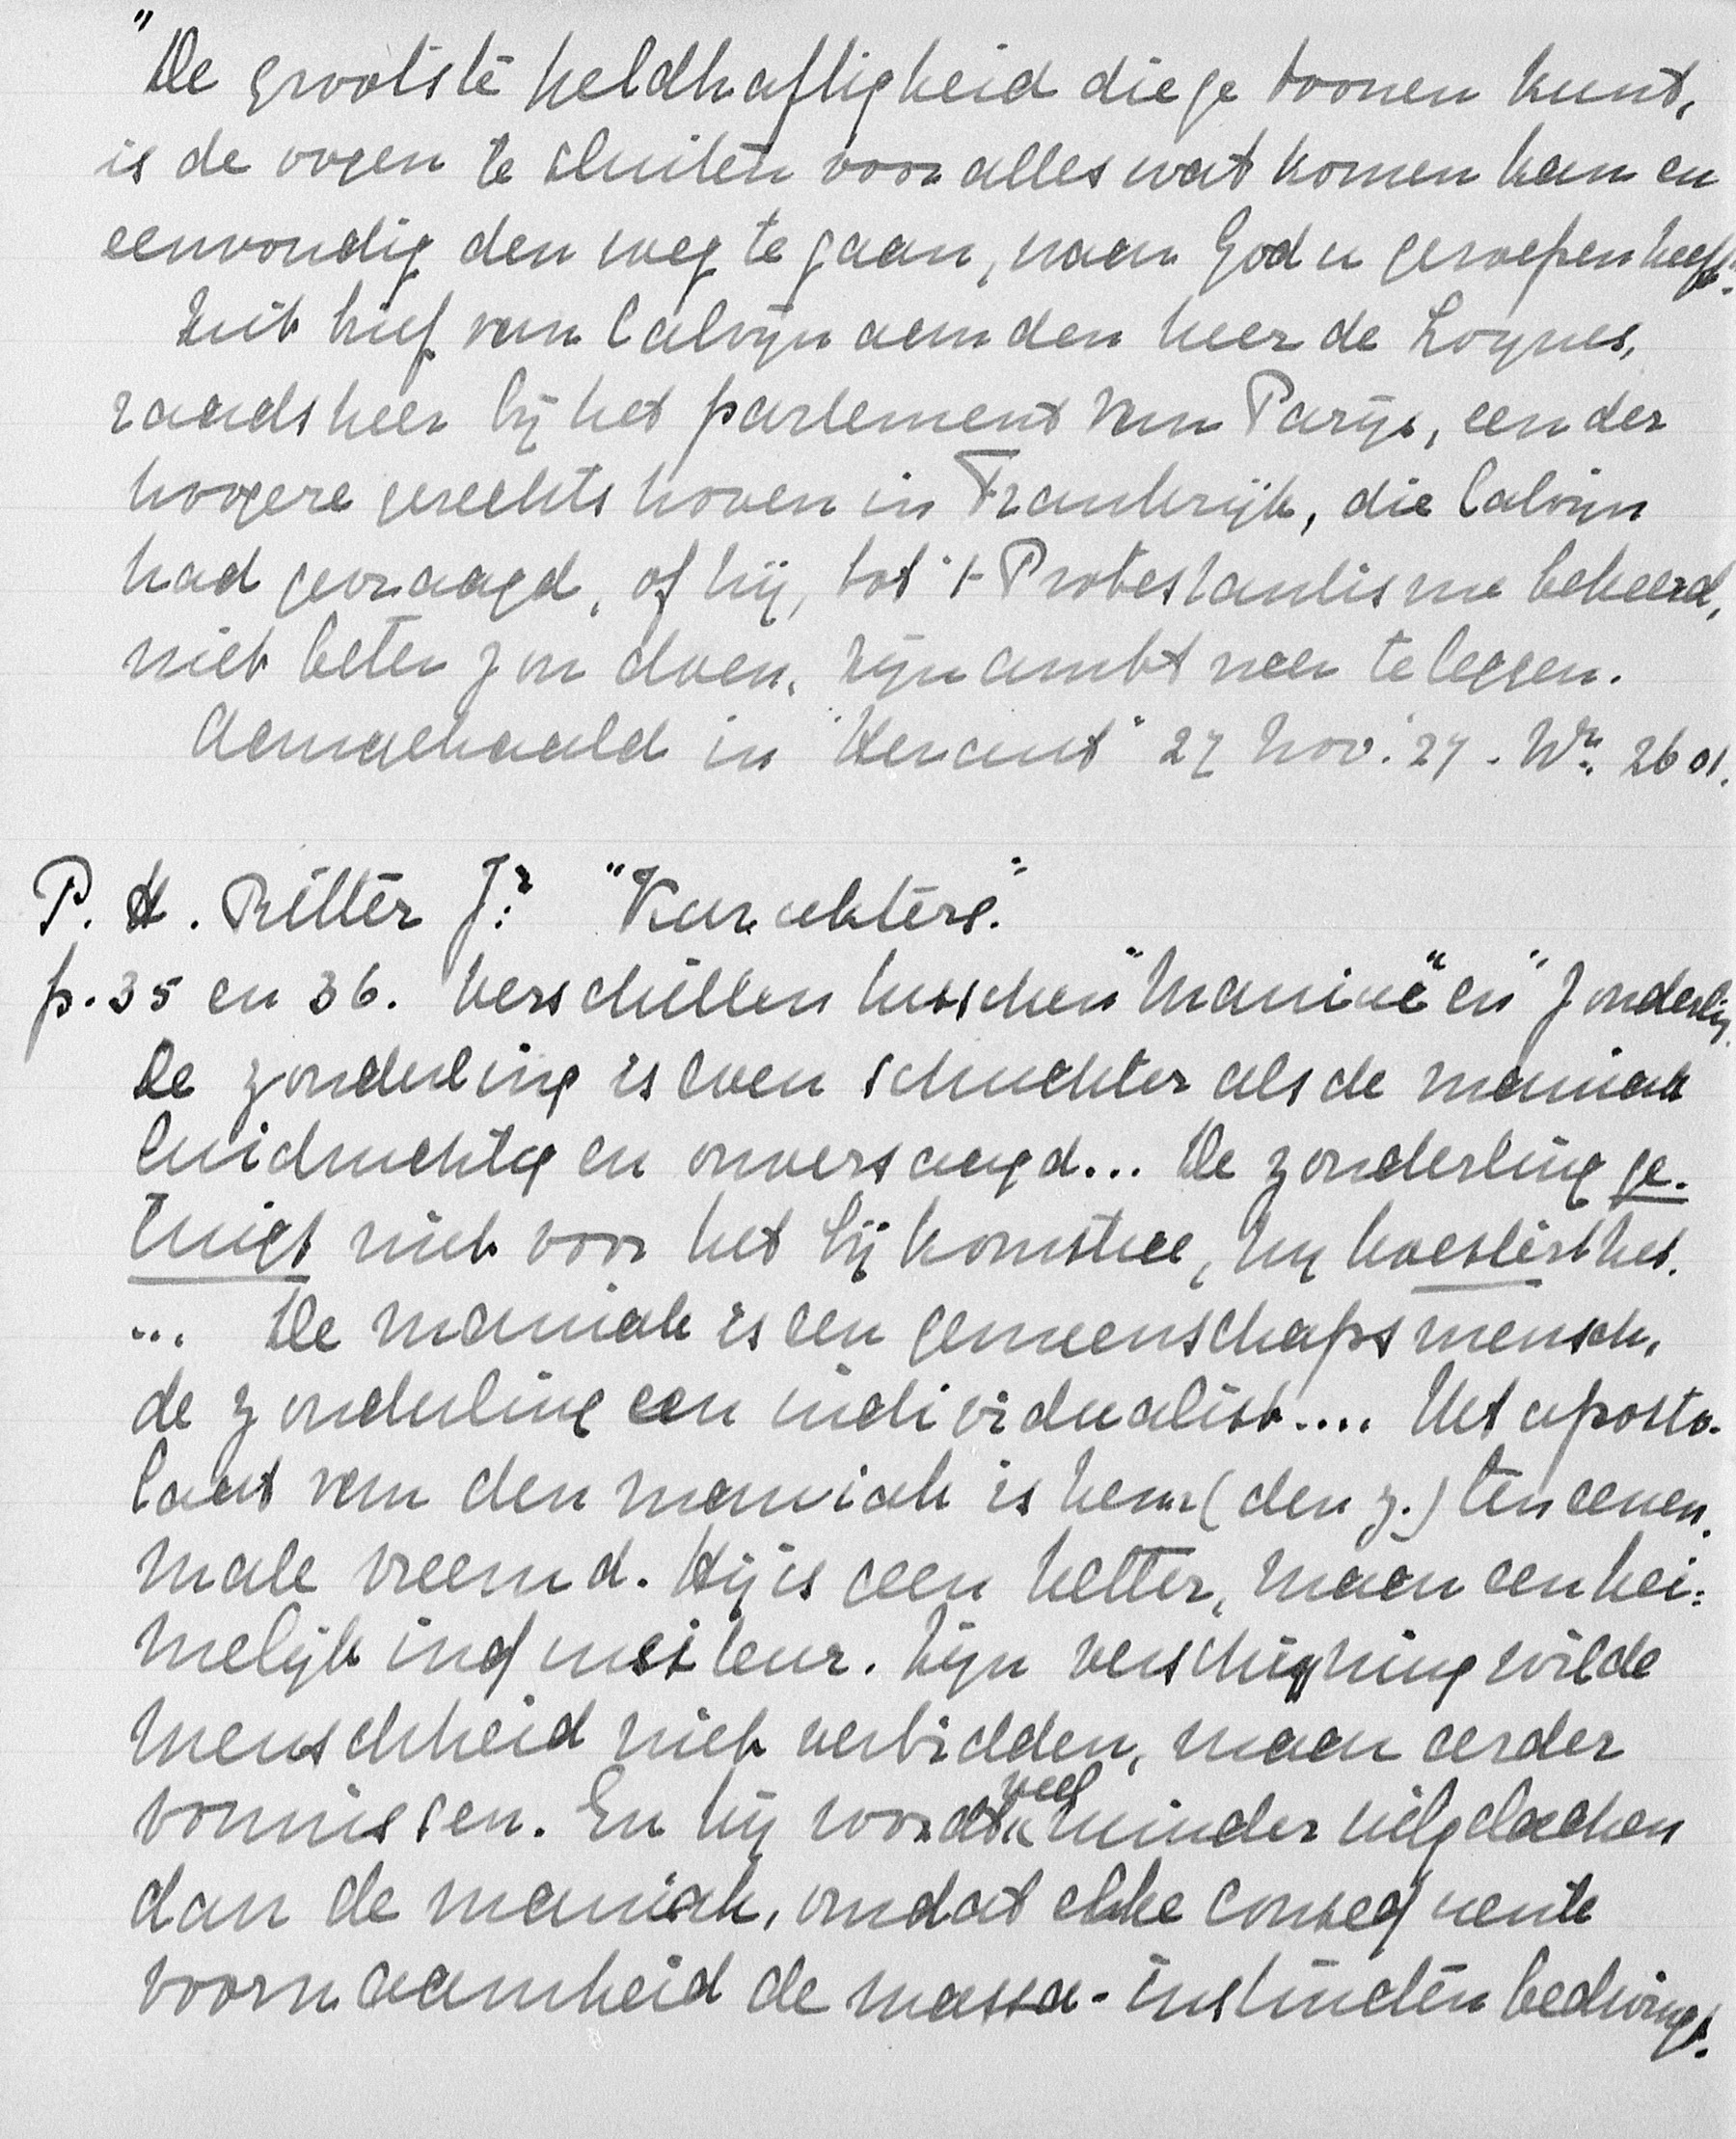 "De grootste heldhaftigheid die ge toonen kunt,
is de oogen te sluiten voor alles wat komen kan en
eenvoudig den weg te gaan, waar God u geroepen heeft."
Uit brief van Calvijn aan den heer de Loynes,
raadsheer bij het parlement van Parijs, een der
hoogere gerechtshoven in Frankrijk, die Calvijn
had gevraagd, of hij, tot 't Protestantisme bekeerd,
niet beter zou doen, zijn ambt neer te leggen.
Aangehaald in "Heraut" 27 Nov. '27. Nr. 2601.
P. H. Ritter Jr. "Karakters".
p. 35 en 36. Verschillen tusschen "Maniak" en "Zonderling.
De zonderling is even schuchter als de maniak
luidruchtig en onversaagd... De zonderling ge-
tuigt niet voor het bijkomstige, hij koestert het.
... De maniak is een gemeenschapsmensch,
de zonderling een individualist.... Het aposto-
laat van den maniak is hem (den z.) ten eenen
male vreemd. Hij is geen ketter, maar een hei-
melijk inquisiteur. Zijn verschijning wil de
menschheid niet verbidden, maar eerder
vonnissen. En hij wordt veel minder uitgelachen
dan de maniak, omdat elke consequente
voornaamheid de massa-instincten bedwingt.